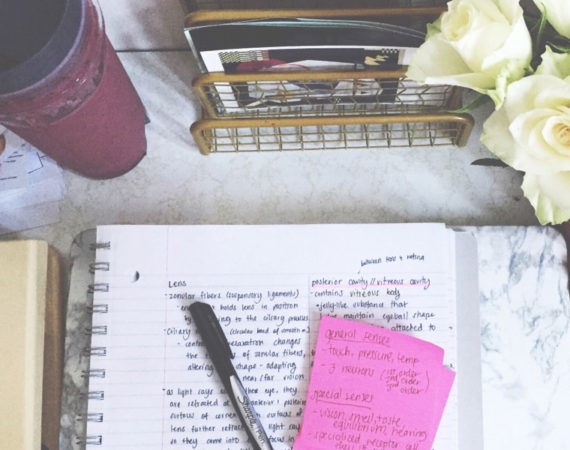 Lens
- zonular fibers (suspensory ligaments)
holds lens in position
to the ciliary process
Ciliary (circular band of smooth m.
- relaxation changes
the of zonular fibers,
altering shape - adapting
near/far vision
- as light rays the eye, they
are refracted anterior/posterior
surface of surface of
lens further light rays
so they come into focus
between lens + retina
posterior cavity // vitreous cavity
- contains vitreous body
- jelly-like substance that
maintain eyeball shape
attached to
general senses
- touch, pressure, temp
- 3 neurons (1st order
2nd order
3rd order)
special senses
- vision, smell, taste,
equilibrium, hearing
- specialized receptor cell
Sharpie Pen